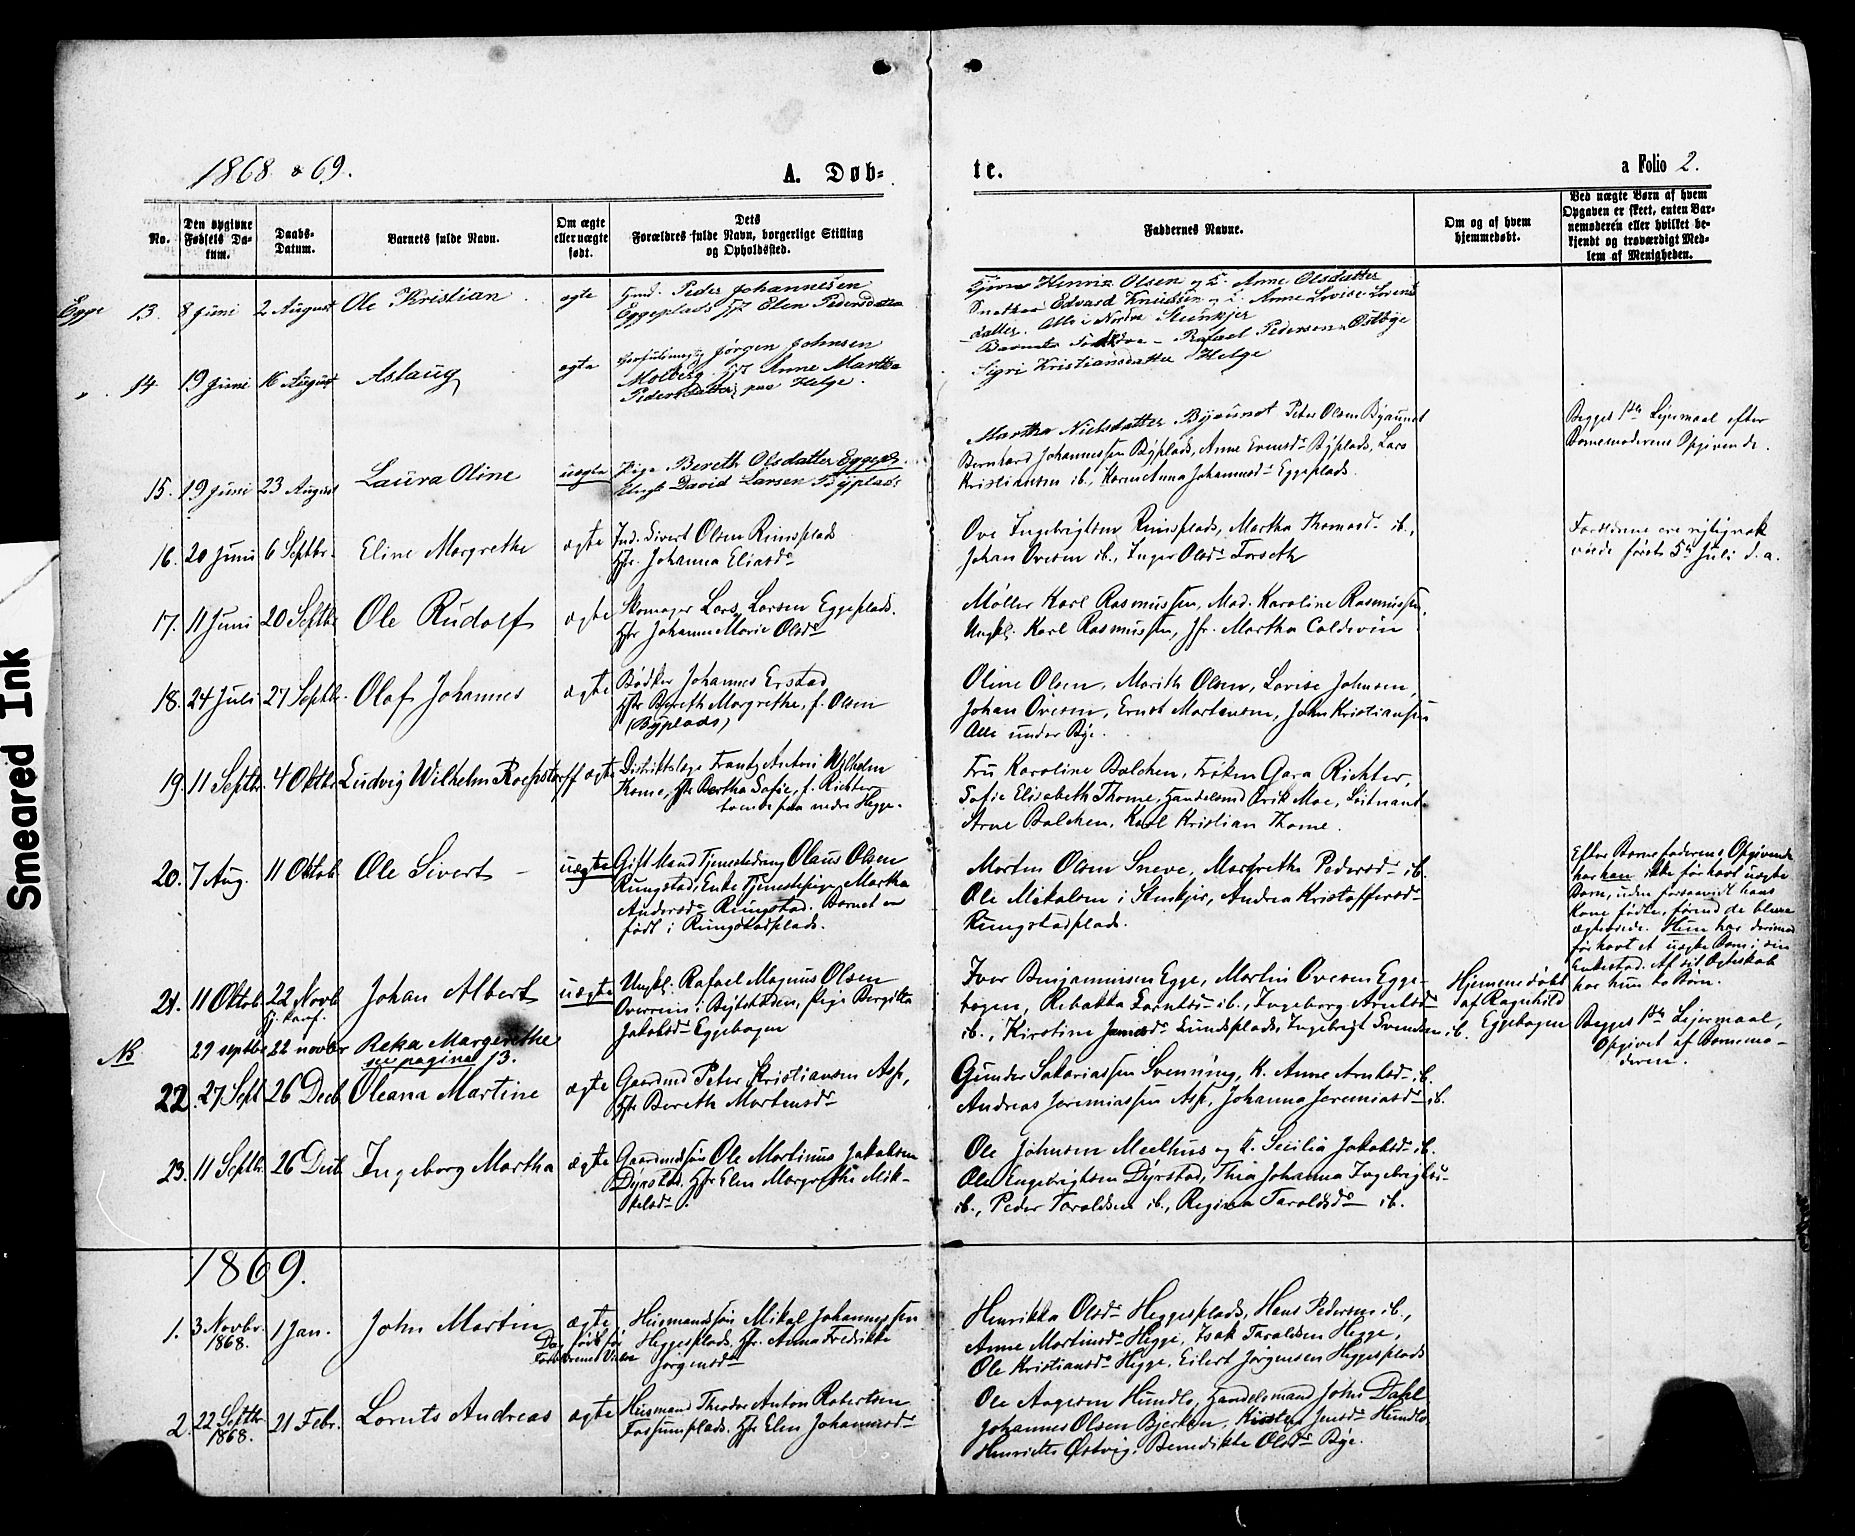 1868 & 69.
A. Døb-
te.
a Folio 2.
No.
Den opgivne Fødsels Da-
tum.
Daabs-
Datum.
Barnets fulde Navn.
Om ægte
eller uægte
født.
Dets
Forældres fulde Navn, borgerlige Stilling
og Opholdssted.
Faddernes Navne.
Om og af hvem
hjemmedøbt.
Ved uægte Børn af hvem
Opgaven er skeet, enten Bar-
nemoderen eller hvilket be-
kjendt og troværdigt Med-
lem af Menigheden.
Egge 13. 8 Juni 2 August Ole Kristian ægte
Gmd. Peder Johannesen
Eggeplads Hst Elen Pedersdatter
Henrik Olsen og K. Anne Olsdatter
Edvard Knudsen og K. Anne Lovise Lorents
datter. Alle i Nordre Stenkjer
14. 19 Juni 16 August Aslaug ægte
Jørgen Johnsen
Molberg Hst Anne Martha
Pedersdatter paa Helge.
Rafael Pedersen Østbye
Sigri Kristiansdatter Helge
15. 19 Juni 23 August Laura Oline uægte
Pige Bereth Olsdatter Eggepls.
Ungk David Larsen Byplads
Martha Nielsdatter Byaunet Peter Olsen Byaunet
Bernhard Johannessen Byplads, Anne Evensdr Byplads, Lars
Kristiansen ib., Karen Anna Johannesdr Eggeplads.
Begges 1ste Lejermaal efter
Barnemoderens Opgivende.
16. 20 Juni 6 Septbr. Eline Margrethe ægte
Ind. Sivert Olsen Rimsplads
Hstr. Johanna Eliasdr
Ove Ingebrigtsen Rimsplads, Martha Thomasdr ib.,
Johan Ovesen ib., Inger Olsdr Forseth
Forældrene ere
viede først 5te Juli d. a.
17. 11 Juni 20 Septbr Ole Rudolf ægte
Skomager Lars Larsen Eggeplads.
Hstr Johanne Marie Olsdr
Møller Karl Rasmussen, Mad. Karoline Rasmussen,
Ungkl. Karl Rasmussen, Jfr. Martha Caldevin
18. 24 Juli 27 Septbr. Olaf Johannes ægte
Bødker Johannes Erstad
Hstr Bereth Margrethe, f. Olsen
(Byplads)
Oline Olsen, Marith Olsen, Lovise Johnsen,
Johan Ovesen, Ernst Martinsen, John Kristiansen
Alle under Bye.
19. 11 Septbr. 4 Oktbr. Ludvig Wilhelm Roepstorff ægte
Distriktslæge Frantz Anton Wilhelm
Thome, Hstr Bertha Sofie, f. Richter
boende paa nedre Hegge.
Fru Karoline Balchen, Frøken Gara Richter,
Sofie Elisabeth Thome, Handelsmd Erik Moe, Løitnant
Arne Balchen, Karl Kristian Thome.
20. 7 Aug. 11 Oktob. Ole Sivert – uægte
Gift Mand Tjenestedreng Olaus Olsen
Rungstad, Enke Tjenestepige Martha
Andersdr Rungstad. Barnet er
født i Rungstadplads.
Morten Olsen Sneve, Margrethe Pedersdr ib.
Ole Mikalsen i Stenkjer, Andrea Kristoffersdr
Rungstadplads.
Efter Barnefaderens Opgivende
har han ikke før havt uægte
Barn, uden forsaavidt hans
Kone fødte, førend de bleve
ægteviede. Hun har derimod
før havt et uægte Barn i sin
Enkestad. Af sit Ægteskab
har hun to Børn.
21. 11 Oktob. 22 Novb Johan Albert uægte
Ungkl. Rafael Magnus Olsen
Overrein i Bejtstaden, Pige Bergitta
Jakobsdr Eggehagen
Iver Benjaminsen Egge, Martin Ovesen Egge-
hagen, Rebekka Larsdr ib., Ingeborg Arntsdr
ib., Kirstine Jensdr Lundsplads, Ingebrigt Svendsen ib.
Hjemmedøbt
af Ragnhild
Eggehagen
Begges 1ste Lejermaal,
Opgivet af Barnemo-
deren.
NB 29 septbr 22 novbr Reka Margrethe
se pagina 13.
22. 27 Sept 26 Decb. Oleana Martine ægte
Gaardmd Peter Kristiansen Asp,
Hstr Bereth Martinsdr
Gunder Sakariassen Svenning, K. Anne Arntsdr ib.
Andreas Jeremiassen Asp, Johanna Jeremiasdr ib.
23. 11 Septbr. 26 Decb. Ingeborg Martha ægte
Gaardmdssøn Ole Martinus Jakobsen
Dyrstad. Hstr Elen Margrethe Mik-
kelsdr.
Ole Johnsen Meelhus og K. Secilia Jakobsdr ib.
Ole Engebrigtsen Dyrstad, Thea Johanna Ingebrigtsdr
ib., Peder Taraldsen ib., Regina Taraldsdr ib.
1869.
1. 3 Novbr. 1868. 1 Jan. John Martin ægte
Husmandssøn Mikal Johannessen
Heggesplads. Hstr. Anna Fredrikke
Jørgensdr
Henrikka Olsdr Heggesplads, Hans Pedersen ib.,
Anne Martinsdr Hegge, Isak Taraldsen Hegge,
Ole Kristiansdr Hegge, Eilert Jørgensen Heggesplads
2. 22 Septbr. 1868. 21 Febr. Lornts Andreas ægte
Husmand Theodor Anton Robertsen
Fossumplads. Hstr Elen Johannesdr
Ole Aagesen Hundlo, Handelsmand John Dahl
Johannes Olsen Bjerken, Kirsten Jensdr Hundlo
Henriette Østvig, Benedikte Olsdr Bye.
Smeared Ink